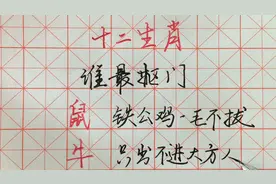 十二生肖
谁最抠门
鼠 铁公鸡一毛不拔
牛 只出不进大方人